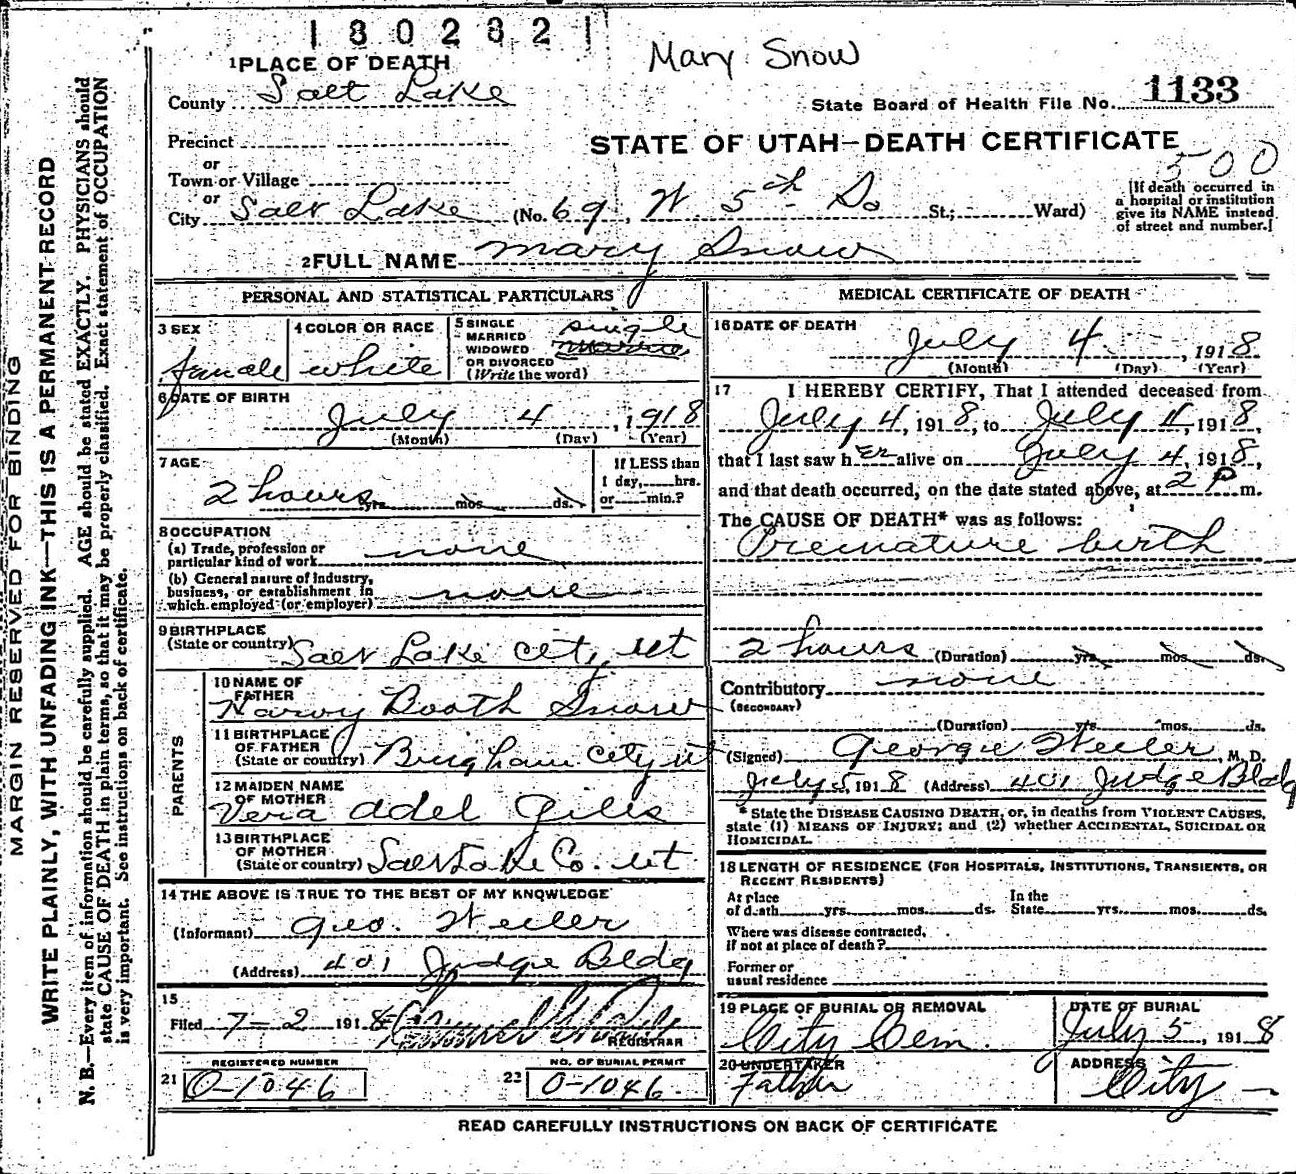 1 8 0 2 8 2
Mary Snow
1 PLACE OF DEATH
County Salt Lake
State Board of Health File No. 1133
Precinct
STATE OF UTAH—DEATH CERTIFICATE
or
500
Town or Village
or
City Salt Lake (No. 69, W 5th So St.; Ward)
[If death occurred in
a hospital or institution
give its NAME instead
of street and number.]
2 FULL NAME Mary Snow
PERSONAL AND STATISTICAL PARTICULARS
3 SEX
female
4 COLOR OR RACE
white
5 SINGLE
MARRIED
WIDOWED
OR DIVORCED
(Write the word)
single
married
6 DATE OF BIRTH
July 4, 1918
(Month) (Day) (Year)
7 AGE
2 hours yrs. mos. ds.
If LESS than
1 day, hrs.
or min.?
8 OCCUPATION
(a) Trade, profession or
particular kind of work none
(b) General nature of industry,
business, or establishment in
which employed (or employer) none
9 BIRTHPLACE
(State or country) Salt Lake City, Ut
PARENTS
10 NAME OF
FATHER
Harvy Booth Snow
11 BIRTHPLACE
OF FATHER
(State or country) Brigham City Ut
12 MAIDEN NAME
OF MOTHER
Vera Adel Gills
13 BIRTHPLACE
OF MOTHER
(State or country) Salt Lake Co. Ut
14 THE ABOVE IS TRUE TO THE BEST OF MY KNOWLEDGE
(Informant) Geo. Weiler
(Address) 401 Judge Bldg
15
Filed 7-2 1918
REGISTRAR
REGISTERED NUMBER
21 O-1046
NO. OF BURIAL PERMIT
22 O-1046
MEDICAL CERTIFICATE OF DEATH
16 DATE OF DEATH
July 4, 1918
(Month) (Day) (Year)
17 I HEREBY CERTIFY, That I attended deceased from
July 4, 1918, to July 4, 1918,
that I last saw her alive on July 4, 1918,
and that death occurred, on the date stated above, at 2 P m.
The CAUSE OF DEATH* was as follows:
Premature birth
2 hours (Duration) yrs. mos. ds.
Contributory none
(SECONDARY)
(Duration) yrs. mos. ds.
(Signed) George Weiler, M. D.
July 5, 1918 (Address) 401 Judge Bldg
* State the DISEASE CAUSING DEATH, or, in deaths from VIOLENT CAUSES,
state (1) MEANS OF INJURY; and (2) whether ACCIDENTAL, SUICIDAL OR
HOMICIDAL.
18 LENGTH OF RESIDENCE (FOR HOSPITALS, INSTITUTIONS, TRANSIENTS, OR
RECENT RESIDENTS)
At place
of death yrs. mos. ds.
In the
State yrs. mos. ds.
Where was disease contracted,
if not at place of death?
Former or
usual residence
19 PLACE OF BURIAL OR REMOVAL
City Cem.
DATE OF BURIAL
July 5, 1918
20 UNDERTAKER
Father
ADDRESS
City
READ CAREFULLY INSTRUCTIONS ON BACK OF CERTIFICATE
MARGIN RESERVED FOR BINDING
WRITE PLAINLY, WITH UNFADING INK—THIS IS A PERMANENT RECORD
N. B.—Every item of information should be carefully supplied. AGE should be stated EXACTLY. PHYSICIANS should
state CAUSE OF DEATH in plain terms, so that it may be properly classified. Exact statement of OCCUPATION
is very important. See instructions on back of certificate.